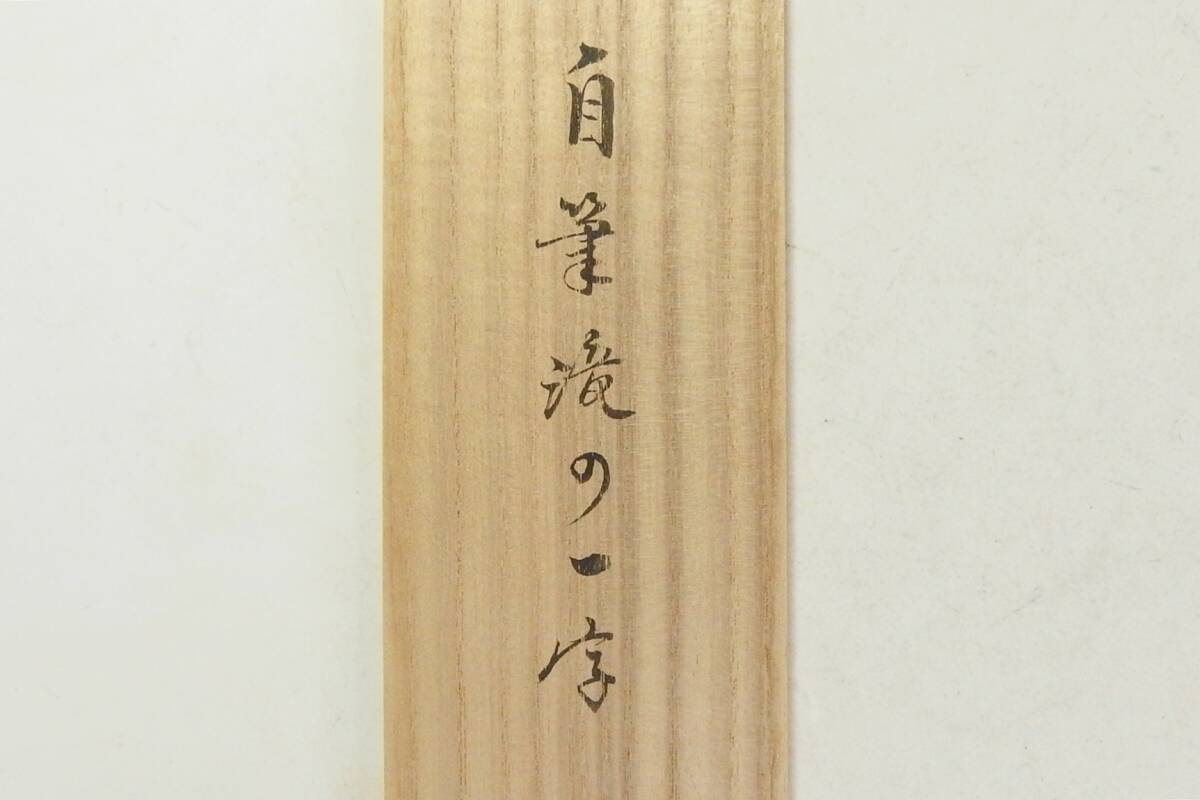 自筆滝の一字